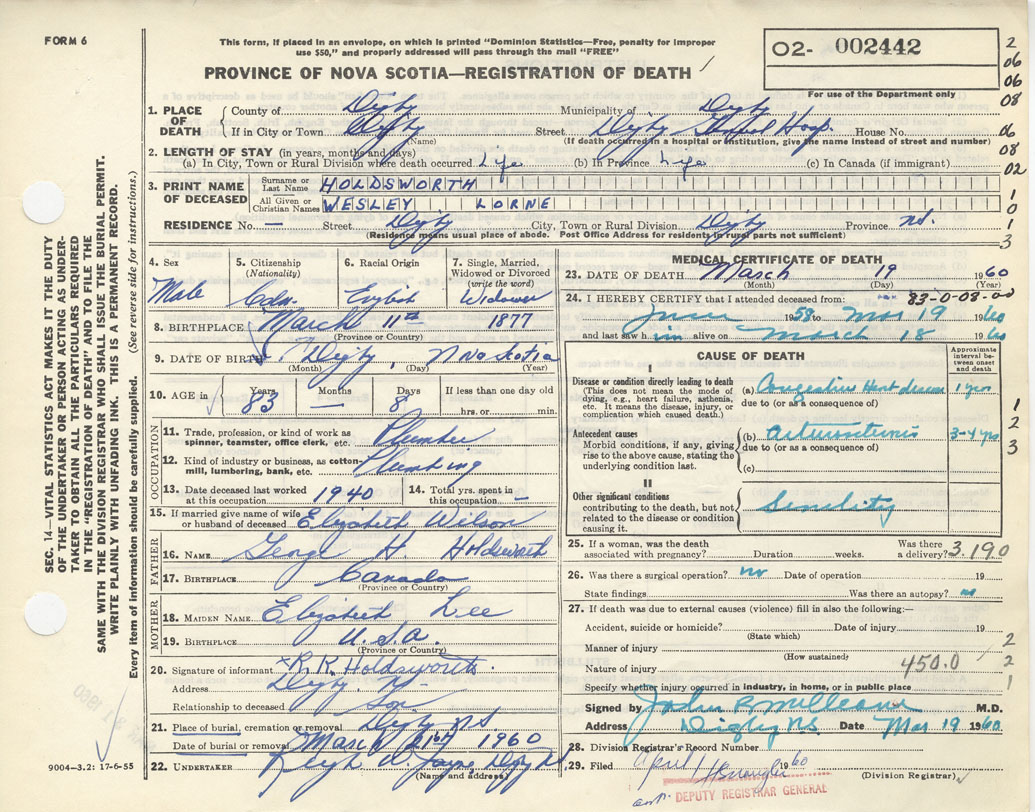 FORM 6
This form, if placed in an envelope, on which is printed "Dominion Statistics—Free, penalty for improper
use $50," and properly addressed will pass through the mail "FREE"
PROVINCE OF NOVA SCOTIA—REGISTRATION OF DEATH
02- 002442
For use of the Department only
2
06
06
08
1. PLACE OF DEATH
County of Digby Municipality of Digby
If in City or Town Digby Street Digby General Hosp. House No.
(Name) (If death occurred in a hospital or institution, give the name instead of street and number)
06
08
02
2. LENGTH OF STAY (in years, months and days)
(a) In City, Town or Rural Division where death occurred. Life (b) In Province Life (c) In Canada (if immigrant)
3. PRINT NAME OF DECEASED
Surname or Last Name HOLDSWORTH
All Given or Christian Names WESLEY LORNE
1
0
1
3
RESIDENCE No. — Street Digby City, Town or Rural Division Digby Province N.S.
(Residence means usual place of abode. Post Office Address for residents in rural parts not sufficient)
4. Sex
Male
5. Citizenship
(Nationality)
Cdn.
6. Racial Origin
English
7. Single, Married,
Widowed or Divorced
(write the word)
Widower
8. BIRTHPLACE March 11th 1877
(Province or Country)
9. DATE OF BIRTH Digby, N
(Month) (Day) (Year)
10. AGE in
Years Months Days If less than one day old
83 — 8 hrs. or min.
OCCUPATION
11. Trade, profession, or kind of work as
spinner, teamster, office clerk, etc. Plumber
12. Kind of industry or business, as cotton
mill, lumbering, bank, etc. Plumbing
13. Date deceased last worked
at this occupation 1940
14. Total yrs. spent in
this occupation —
15. If married give name of wife
or husband of deceased Elizabeth Wilson
FATHER
16. NAME George H. Holdsworth
17. BIRTHPLACE Canada
(Province or Country)
MOTHER
18. MAIDEN NAME Elizabeth Lee
19. BIRTHPLACE U.S.A.
(Province or Country)
20. Signature of informant R. K. Holdsworth.
Address Digby, N—
Relationship to deceased Son
21. Place of burial, cremation or removal Digby NS
Date of burial or removal March 21st 1960
22. UNDERTAKER Digby NS
(Name and address)
MEDICAL CERTIFICATE OF DEATH
23. DATE OF DEATH March 19 1960
(Month) (Day) (Year)
24. I HEREBY CERTIFY that I attended deceased from: 83-0-08-00
June 1958 to Mar 19 1960
and last saw him alive on March 18 1960
CAUSE OF DEATH
Approximate
interval be-
tween onset
and death
I
Disease or condition directly leading to death
(This does not mean the mode of
dying, e.g., heart failure, asthenia,
etc. It means the disease, injury, or
complication which caused death.)
(a) Congestive Heart disease 1 yr
due to (or as a consequence of)
Antecedent causes
Morbid conditions, if any, giving
rise to the above cause, stating the
underlying condition last.
(b) 3-4 yrs
due to (or as a consequence of)
(c)
1
2
3
II
Other significant conditions
contributing to the death, but not
related to the disease or condition
causing it.
Senility
25. If a woman, was the death
associated with pregnancy? Duration weeks. Was there
a delivery? 3.190
26. Was there a surgical operation? no Date of operation 19
State findings Was there an autopsy? no
27. If death was due to external causes (violence) fill in also the following:—
Accident, suicide or homicide? Date of injury 19
(State which)
Manner of injury
(How sustained)
Nature of injury 450.0
2
2
1
Specify whether injury occurred in industry, in home, or in public place
Signed by M.D.
Address Digby NS Date Mar 19 1960
28. Division Registrar's Record Number
29. Filed April 1 1960
(Division Registrar)
DEPUTY REGISTRAR GENERAL
SEC. 14—VITAL STATISTICS ACT MAKES IT THE DUTY
OF THE UNDERTAKER OR PERSON ACTING AS UNDER-
TAKER TO OBTAIN ALL THE PARTICULARS REQUIRED
IN THE "REGISTRATION OF DEATH" AND TO FILE THE
SAME WITH THE DIVISION REGISTRAR WHO SHALL ISSUE THE BURIAL PERMIT.
WRITE PLAINLY WITH UNFADING INK. THIS IS A PERMANENT RECORD.
Every item of information should be carefully supplied. (See reverse side for instructions.)
9004—3.2: 17-6-55